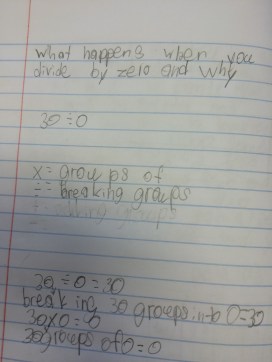 what happens when you
divide by zero and why
30 ÷ 0
x = groups of
÷ = breaking groups
30 ÷ 0 = 30
breaking 30 groups into 0 = 30
30 x 0 = 0
30 groups of 0 = 0